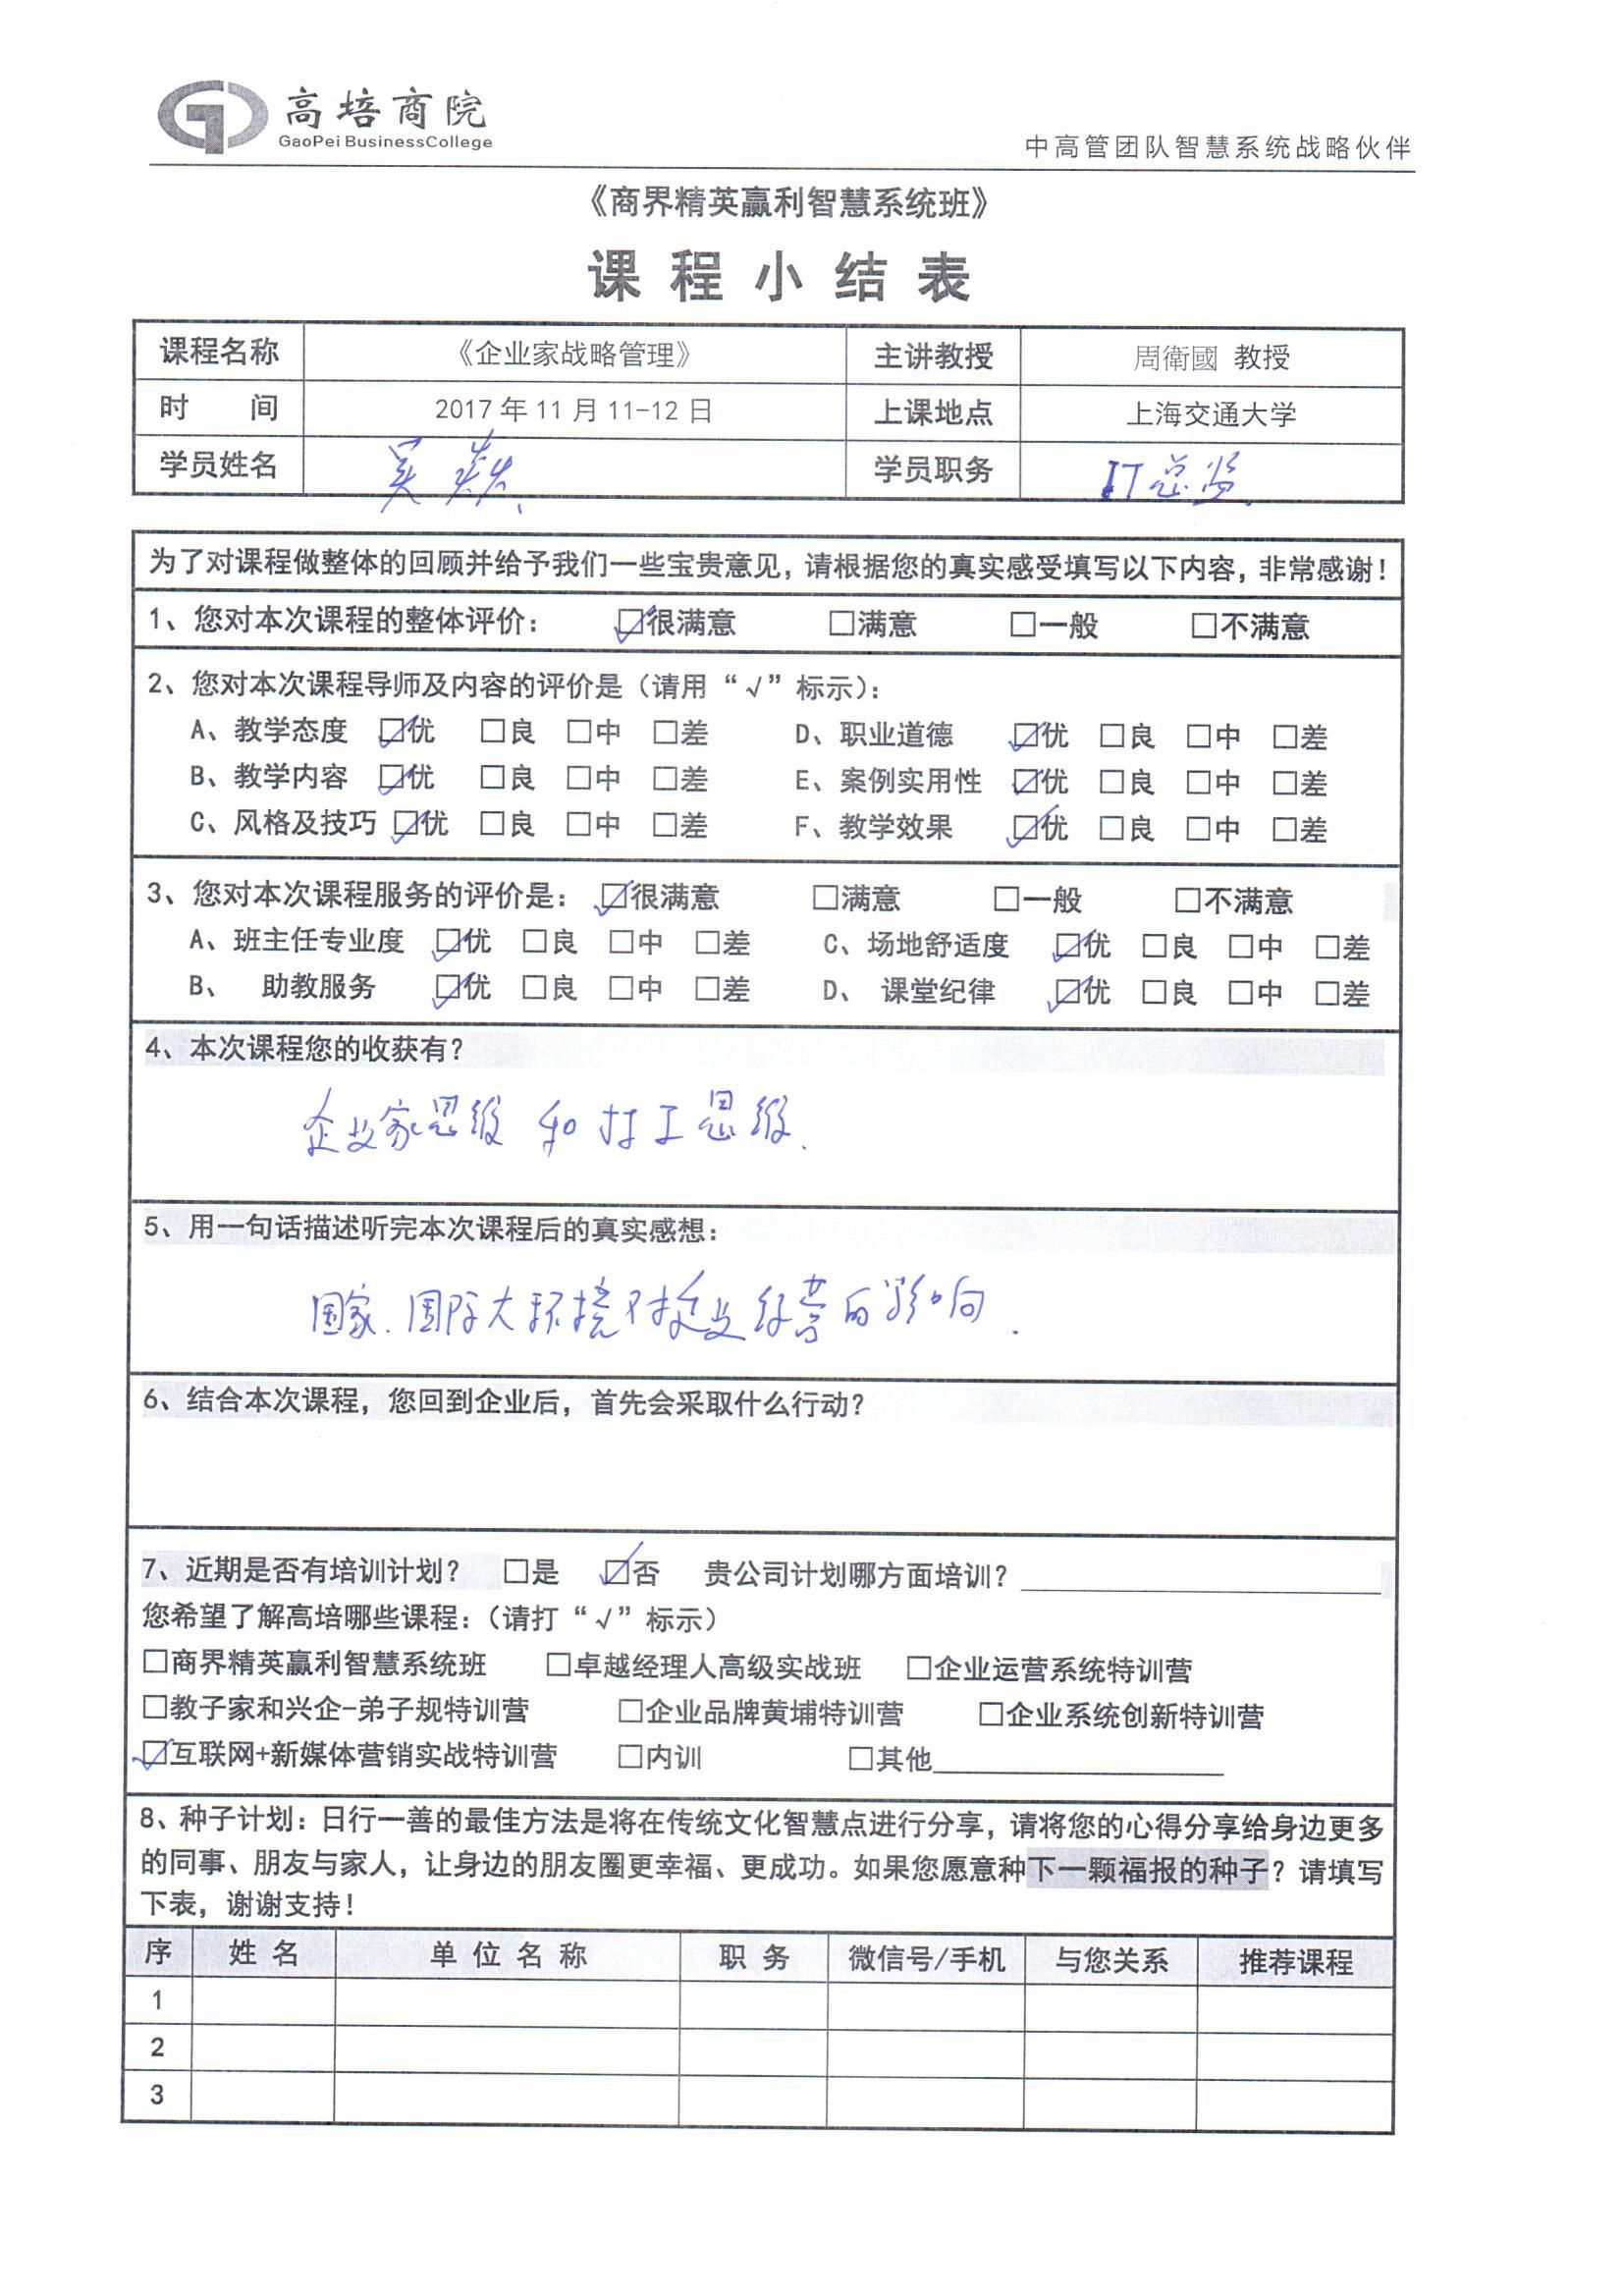 高培商院
GaoPei BusinessCollege
中高管团队智慧系统战略伙伴
《商界精英赢利智慧系统班》
课程小结表
课程名称 《企业家战略管理》 主讲教授 周衛國 教授
时 间 2017年11月11-12日 上课地点 上海交通大学
学员姓名 吴燚 学员职务 IT总监
为了对课程做整体的回顾并给予我们一些宝贵意见，请根据您的真实感受填写以下内容，非常感谢！
1、您对本次课程的整体评价： ☑很满意 □满意 □一般 □不满意
2、您对本次课程导师及内容的评价是（请用“√”标示）：
A、教学态度 ☑优 □良 □中 □差 D、职业道德 ☑优 □良 □中 □差
B、教学内容 ☑优 □良 □中 □差 E、案例实用性 ☑优 □良 □中 □差
C、风格及技巧 ☑优 □良 □中 □差 F、教学效果 ☑优 □良 □中 □差
3、您对本次课程服务的评价是： ☑很满意 □满意 □一般 □不满意
A、班主任专业度 ☑优 □良 □中 □差 C、场地舒适度 ☑优 □良 □中 □差
B、 助教服务 ☑优 □良 □中 □差 D、 课堂纪律 ☑优 □良 □中 □差
4、本次课程您的收获有？
企业家思维 和 打工思维.
5、用一句话描述听完本次课程后的真实感想：
国家.国际大环境对企业经营的影响.
6、结合本次课程，您回到企业后，首先会采取什么行动？
7、近期是否有培训计划？ □是 ☑否 贵公司计划哪方面培训？
您希望了解高培哪些课程：（请打“√”标示）
□商界精英赢利智慧系统班 □卓越经理人高级实战班 □企业运营系统特训营
□教子家和兴企-弟子规特训营 □企业品牌黄埔特训营 □企业系统创新特训营
☑互联网+新媒体营销实战特训营 □内训 □其他
8、种子计划：日行一善的最佳方法是将在传统文化智慧点进行分享，请将您的心得分享给身边更多
的同事、朋友与家人，让身边的朋友圈更幸福、更成功。如果您愿意种下一颗福报的种子？请填写
下表，谢谢支持！
序 姓名 单位名称 职务 微信号/手机 与您关系 推荐课程
1
2
3